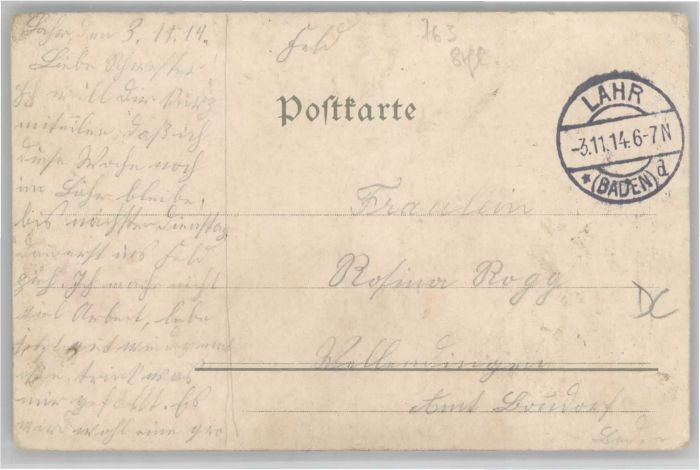 Lahr, den 3.11.14.
Liebe Schwester!
Ich will Dir kurz
mitteilen, daß ich
diese Woche noch
in Lahr bleibe,
bis nächster Dienstag
dann erst ins Feld
zieh. Ich mache nicht
viel Arbeit, lebe
jetzt gut
trink was
mir gefällt. Es
wird wohl eine gro
Feld
763
Postkarte
LAHR
-3.11.14.6-7N
*(BADEN)d
Fraulein
Rosina Rogg
Wellendingen
Amt Bondorf
Baden